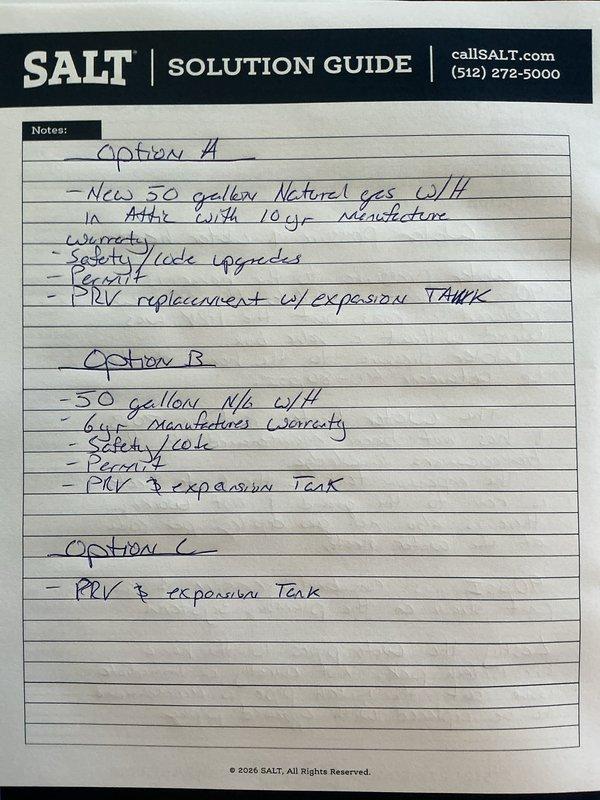 SALT | SOLUTION GUIDE | callSALT.com
(512) 272-5000
Notes:
Option A
- New 50 gallon Natural gas W/H
in Attic with 10yr Manufacture
warraty
- Safety/code upgrades
- Permit
- PRV replacement w/ expasion TANK
Option B
- 50 gallon N/G W/H
- 6yr Manufactures Warraty
- Safety/code
- Permit
- PRV & expansion Tank
Option C
- PRV & expansion Tank
© 2026 SALT, All Rights Reserved.